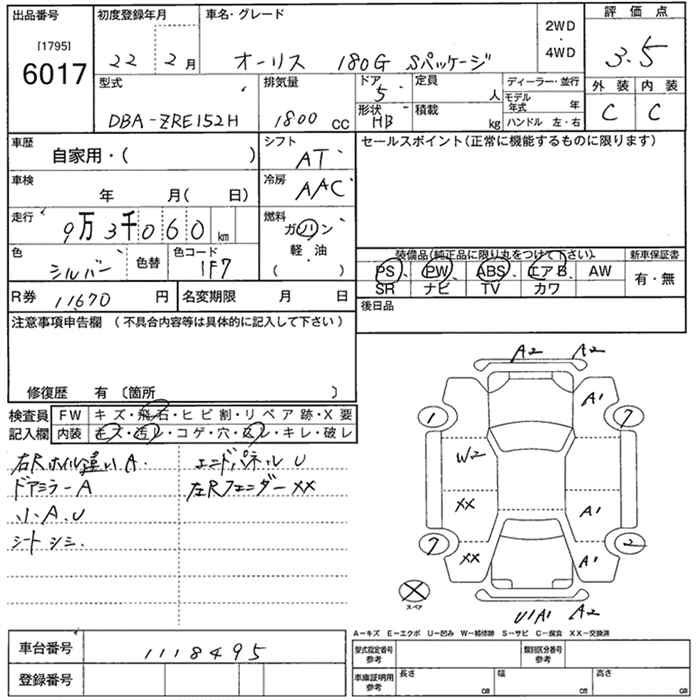 出品番号
[1795]
6017
初度登録年月
22年2月
車名・グレード
オーリス 180G Sパッケージ
2WD
・
4WD
評価点
3.5
型式
DBA-ZRE152H
排気量
1800 CC
ドア
5
形状
HB
定員
人
積載
kg
ディーラー・並行
モデル年式 年
ハンドル 左・右
外装 内装
C C
車歴
自家用・( )
シフト
AT
車検
年 月( 日)
冷房
AAC
走行
9万3千060km
燃料
ガソリン
軽油
( )
色
シルバー
色替
色コード
1F7
R券 11670円
名変期限 月 日
セールスポイント(正常に機能するものに限ります)
装備品(純正品に限り丸をつけて下さい)
PS PW ABS エアB AW
SR ナビ TV カワ
新車保証書
有・無
後日品
注意事項申告欄 (不具合内容等は具体的に記入して下さい)
修復歴 有 〔箇所 〕
検査員
記入欄
FW キズ・飛石・ヒビ割・リペア跡・X要
内装 キズ・汚レ・コゲ・穴・・キレ・破レ
右Rホイル違いA.
エンドパネルU
ドアミラーA
左RフェンダーXX
小A.U
シートシミ
A2 A2
1 A1 7
W2
XX A1
7 XX A1 2
スペア
U1A1 A2
A-キズ E-エクボ U-凹み W-補修跡 S-サビ C-腐食 XX-交換済
車台番号
1118495
登録番号
型式指定番号
参考
類別区分番号
参考
車庫証明用
参考
長さ cm
幅 cm
高さ cm